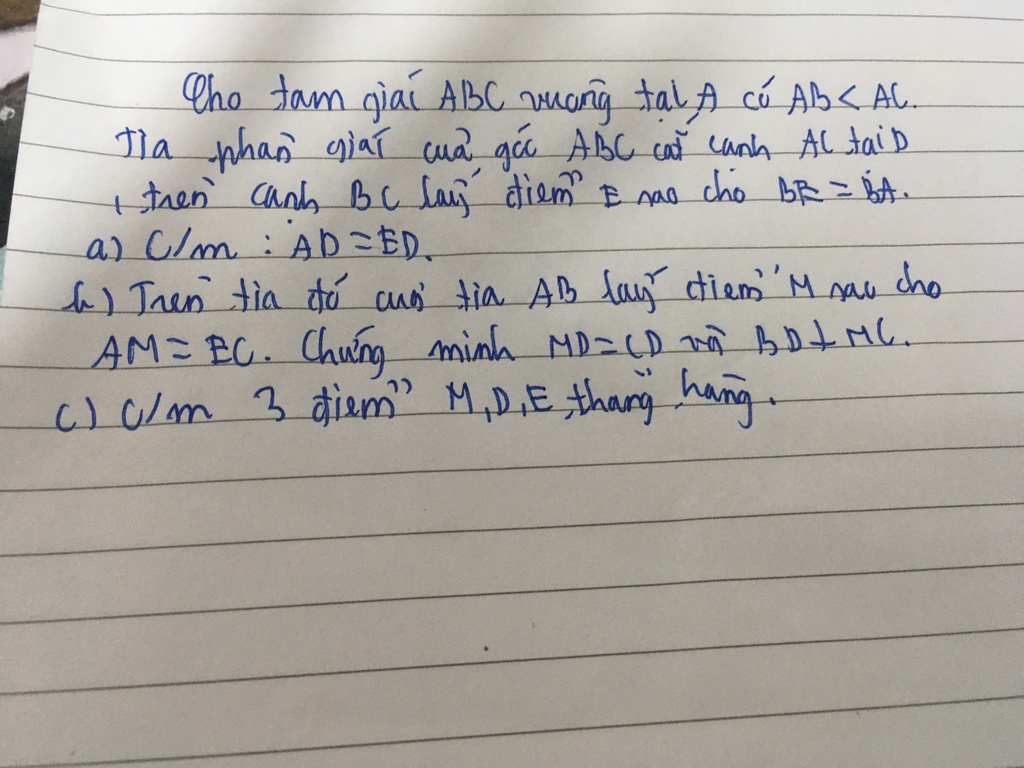 Cho tam giác ABC vuông tại A có AB < AC.
Tia phân giác của góc ABC cắt cạnh AC tại D
, trên cạnh BC lấy điểm E sao cho BE = BA.
a) C/m : AD = ED.
b) Trên tia đối của tia AB lấy điểm M sao cho
AM = EC. Chứng minh MD = CD và BD ⊥ MC.
c) C/m 3 điểm M, D, E thẳng hàng.